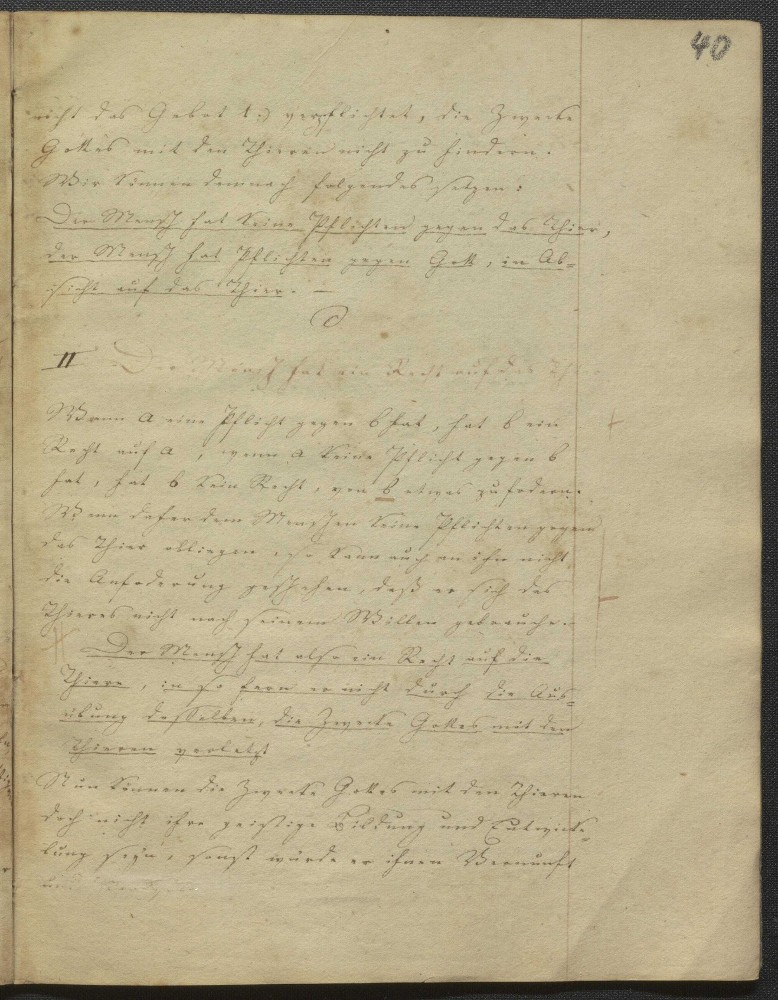 40
nicht das Gebot 1.) verpflichtet, die Zwecke
Gottes mit den Thieren nicht zu hindern.
Wir können demnach folgendes setzen:
Der Mensch hat keine Pflichten gegen das Thier,
der Mensch hat Pflichten gegen Gott, in Ab=
sicht auf das Thier. –
II Der Mensch hat ein Recht auf das Thier
Wenn a eine Pflicht gegen b hat, hat b ein
Recht auf a, wenn a keine Pflicht gegen b
hat, hat b kein Recht, von b etwas zu fodern.
Wenn daher dem Menschen keine Pflichten gegen
das Thier obliegen, so kann auch an ihn nicht
die Anfoderung geschehen, daß er sich des
Thieres nicht nach seinem Willen gebrauche.
Der Mensch hat also ein Recht auf die
Thiere, in so fern er nicht durch die Aus=
übung desselben, die Zwecke Gottes mit den
Thieren verletzt
Nun können die Zwecke Gottes mit den Thieren
doch nicht ihre geistige Bildung und Entwicke=
lung seyn, sonst würde er ihnen Vernunft